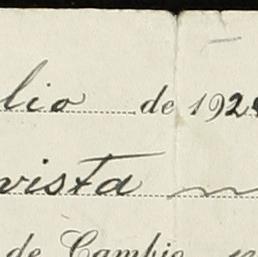 lio de 192
vista
de Cambio